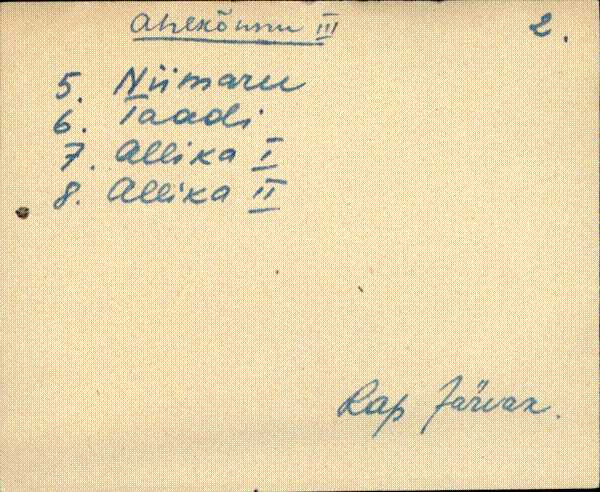 Ahekõnnu III
2.
5. Niimaru
6. Taadi
7. Allika I
8. Allika II
Rap Järvak.